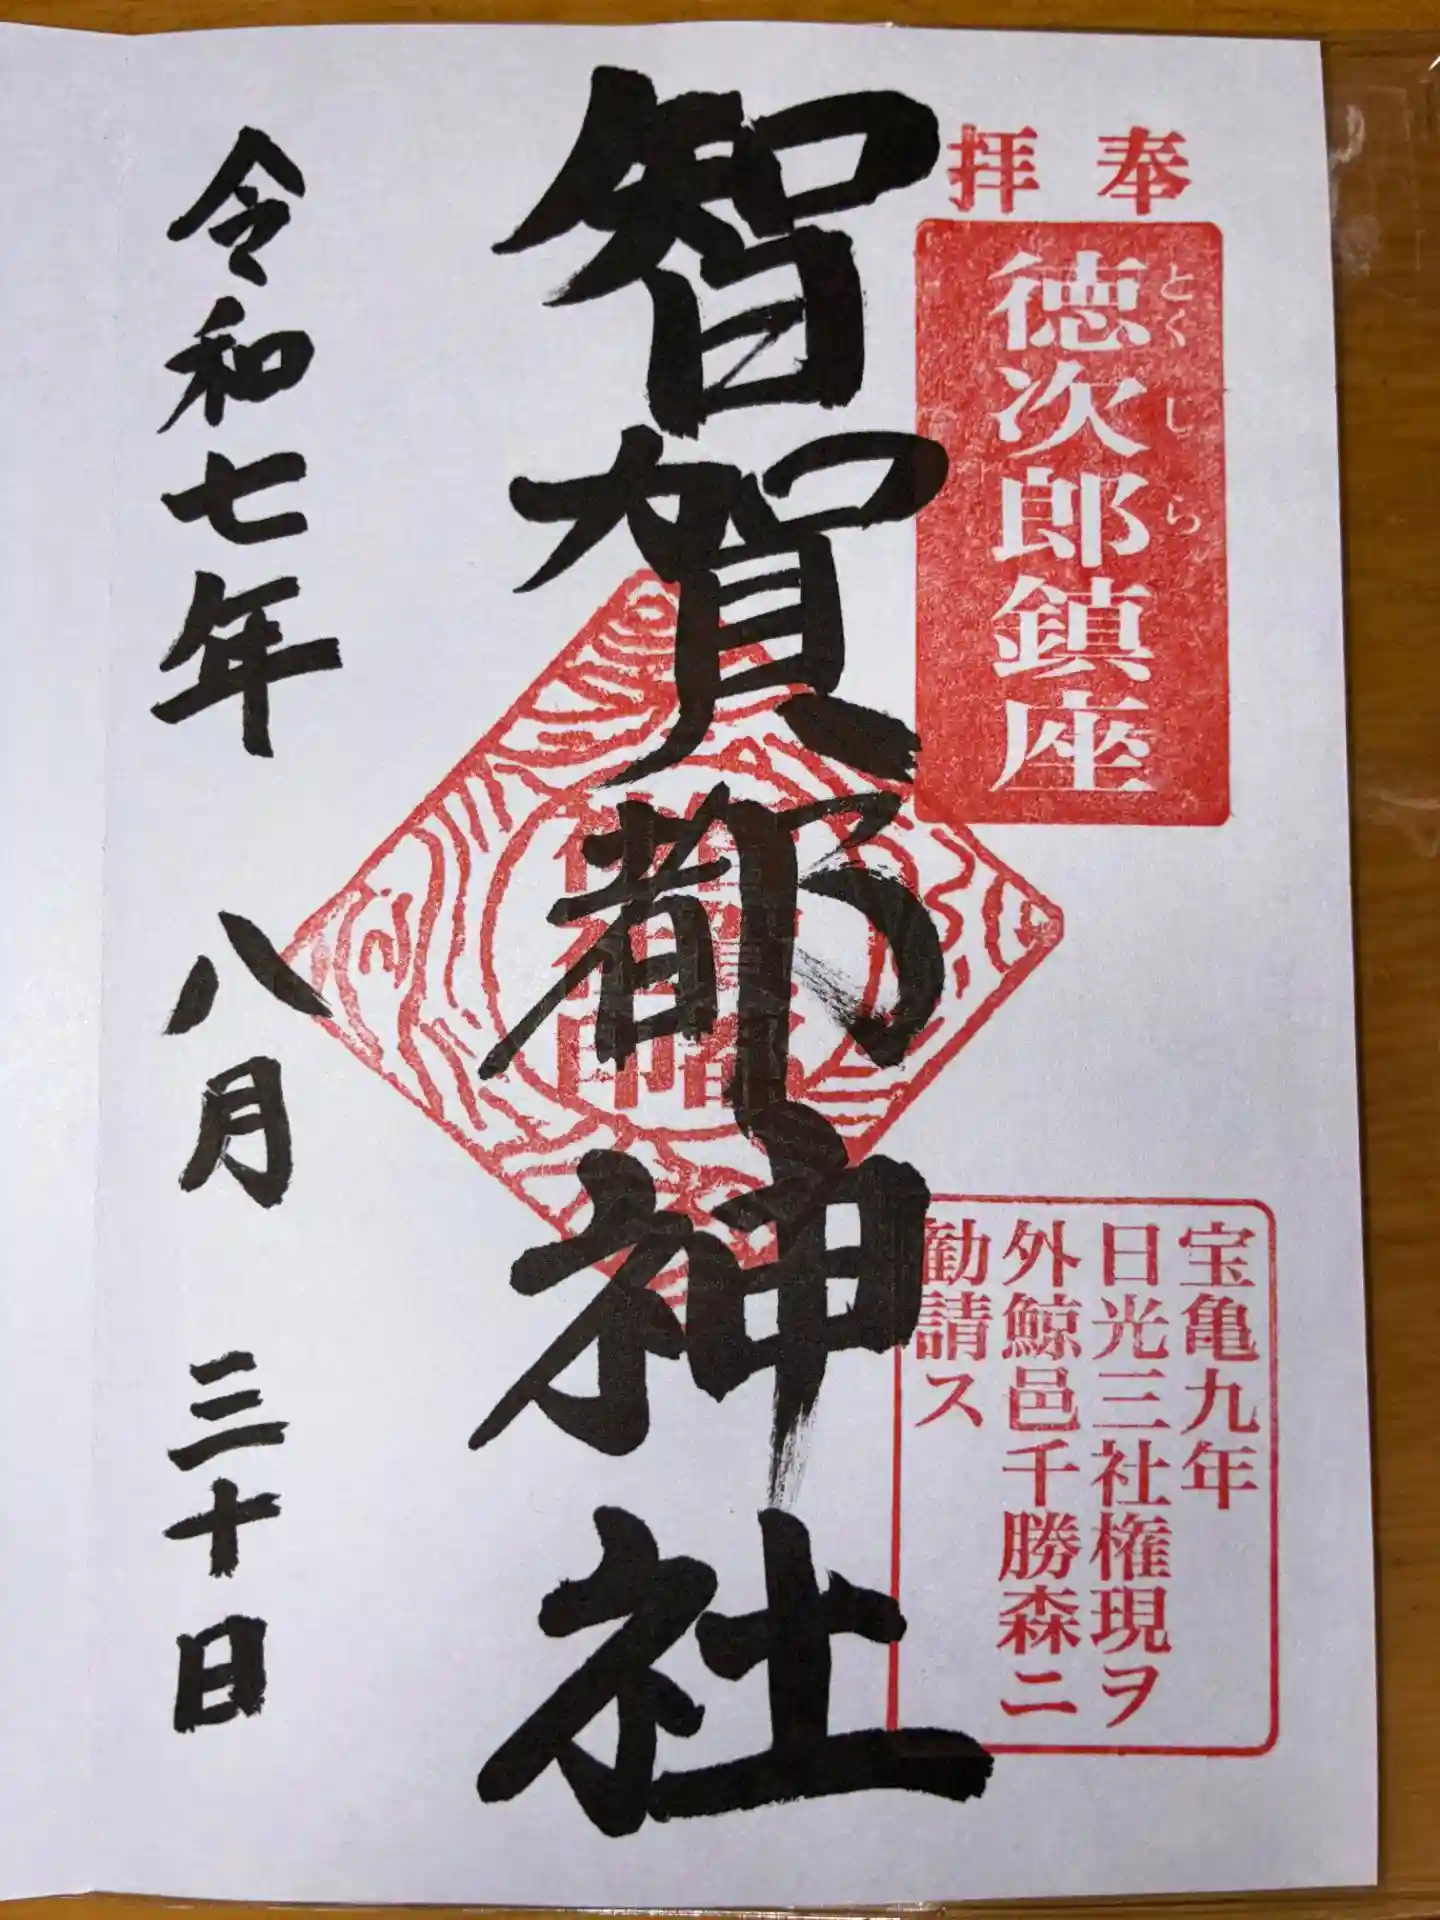 奉拝
徳次郎鎮座
とくじら
宝亀九年
日光三社権現ヲ
外鯨邑千勝森ニ
勧請ス
智賀都神社
智賀都
神社印
令和七年 八月 三十日